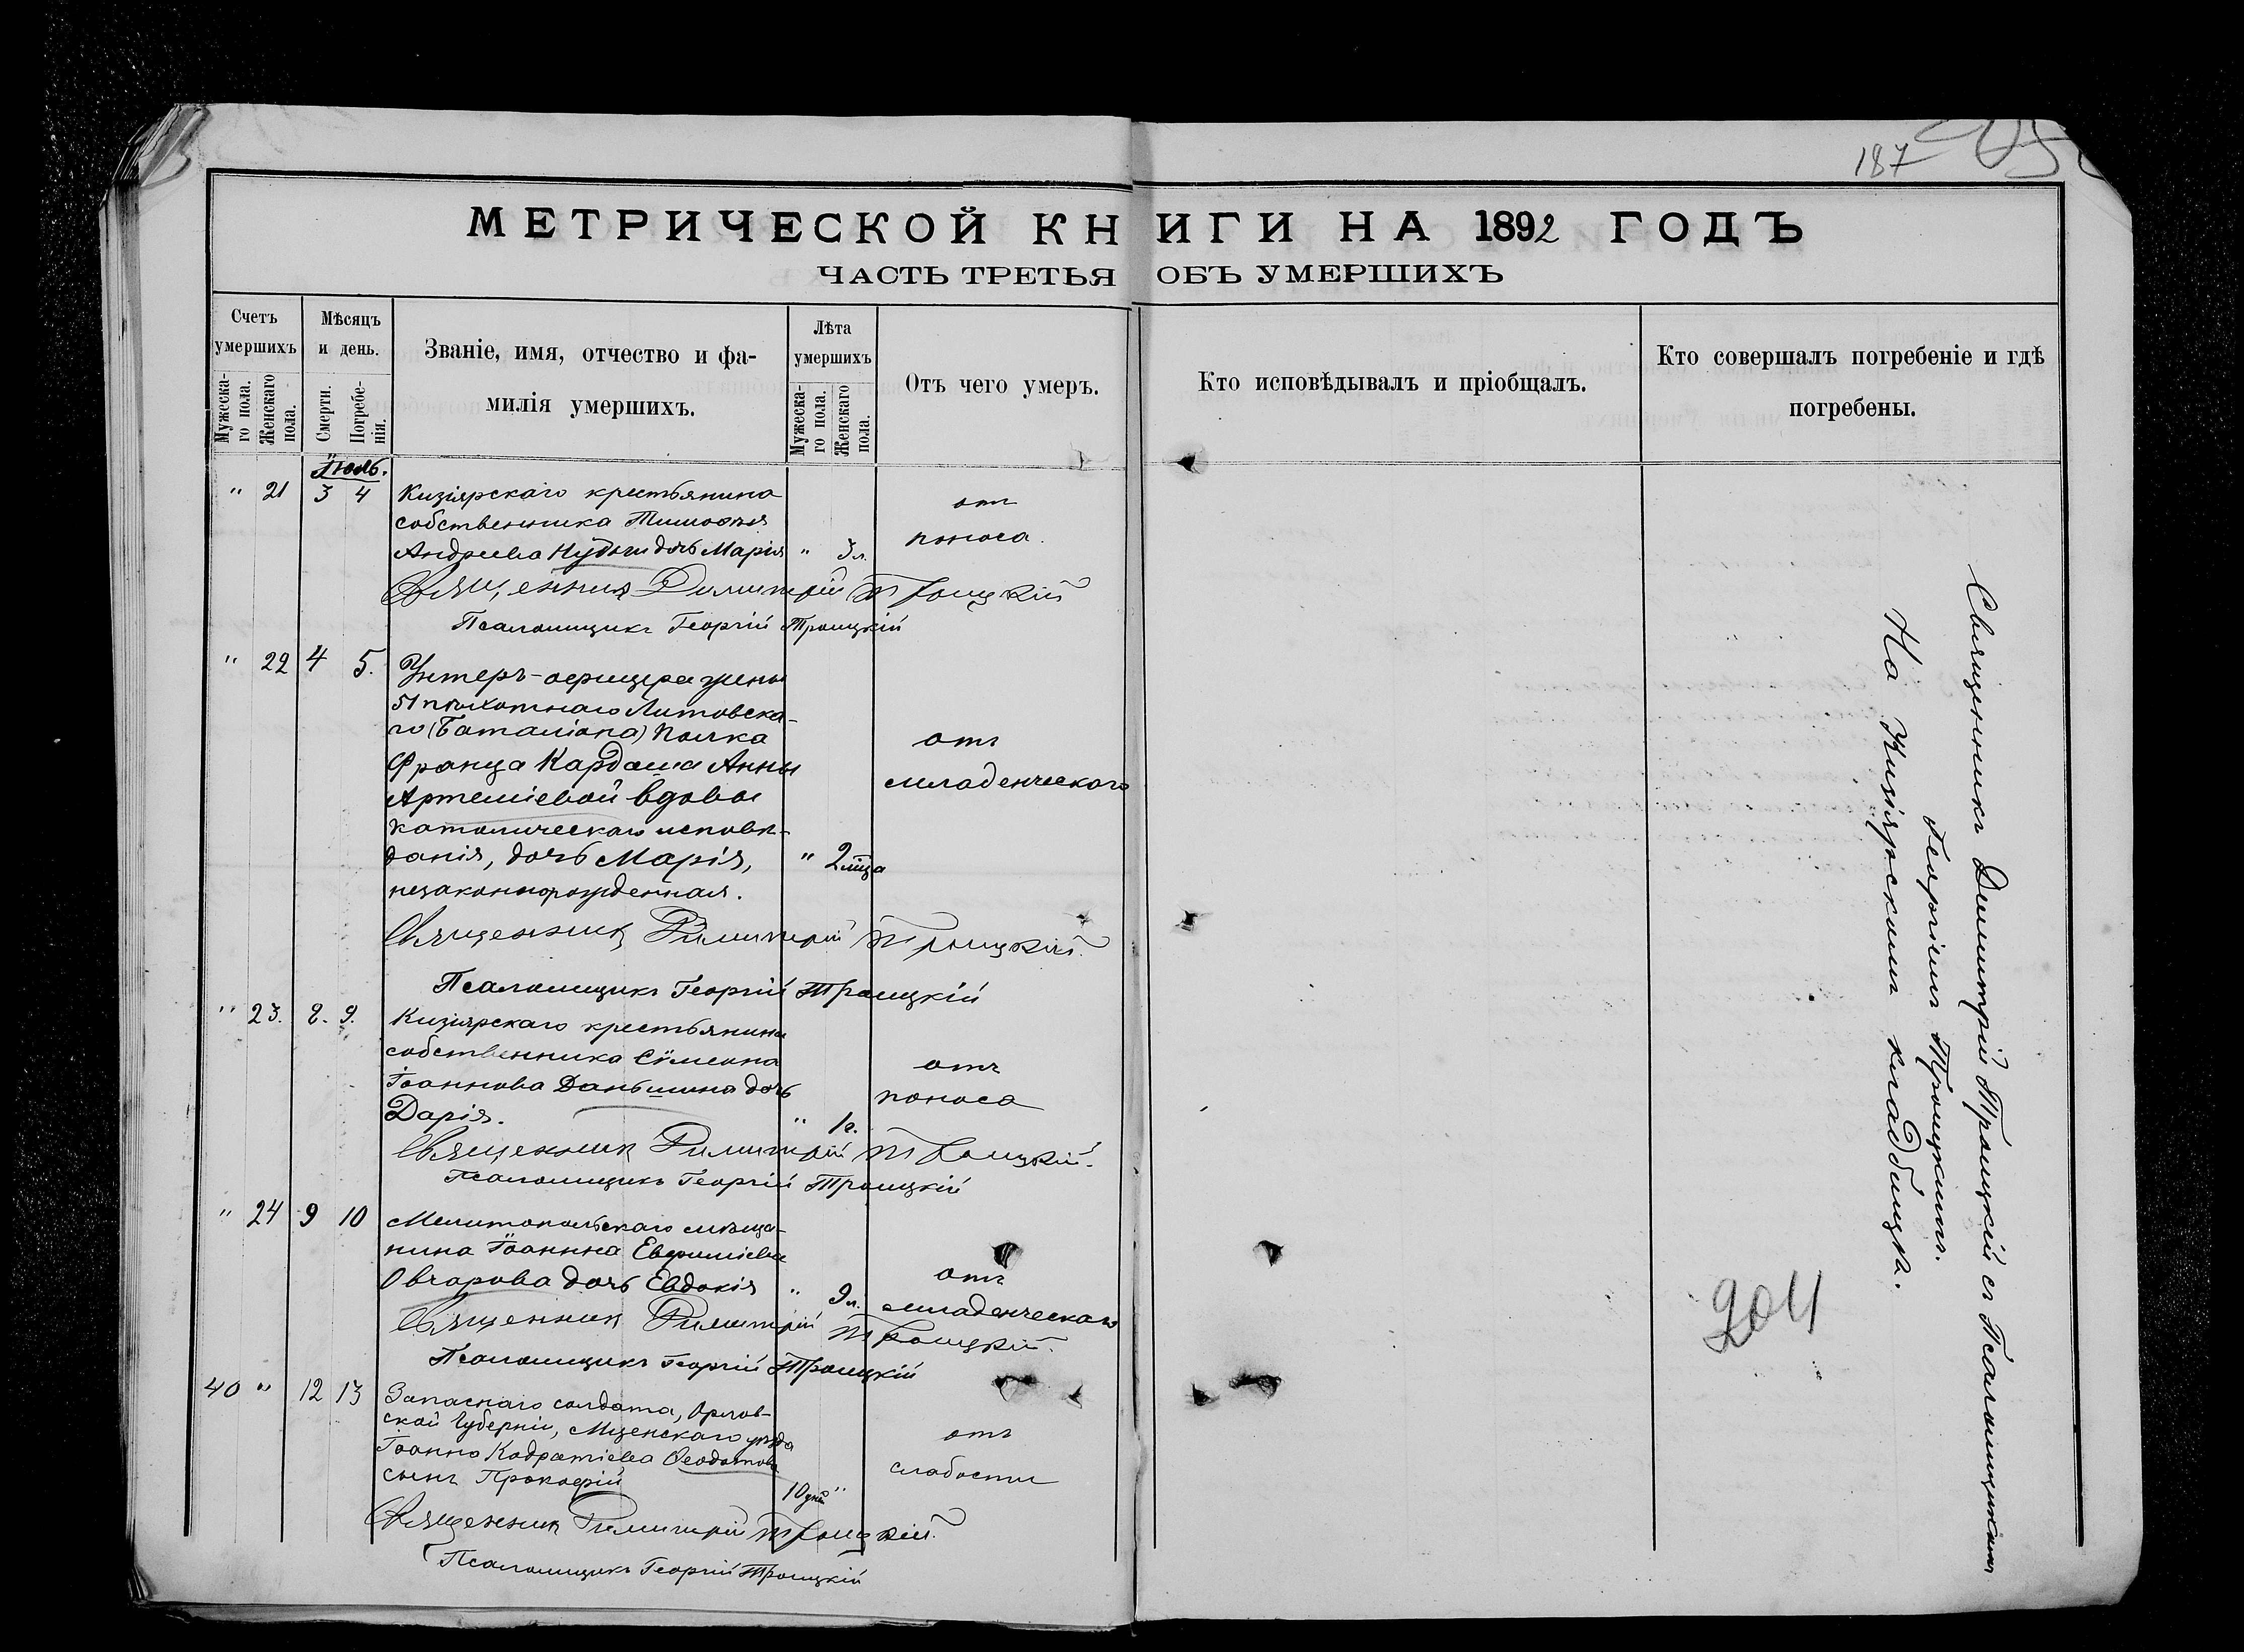 187
МЕТРИЧЕСКОЙ КНИГИ НА 1892 ГОДЪ
ЧАСТЬ ТРЕТЬЯ ОБЪ УМЕРШИХЪ
Счетъ умершихъ
Мужеска-го пола.
Женскаго пола.
Мѣсяцъ и день.
Смерти.
Погребе-нія.
Званіе, имя, отчество и фа-
милія умершихъ.
Лѣта умершихъ
Мужеска-го пола.
Женскаго пола.
Отъ чего умеръ.
Кто исповѣдывалъ и пріобщалъ.
Кто совершалъ погребеніе и гдѣ
погребены.
Іюль.
" 21 3 4 Кизіярскаго крестьянина
собственника Тимоѳея
Андреева дочь Марія " 3 л.
отъ
поноса.
Священникъ Димитрій Троицкій
Псаломщикъ Георгій Троицкій
" 22 4 5. Унтеръ-офицера жены
51 пѣхотнаго Литовска-
го (Баталіона) Полка
Франца Кардаша Анны
Артеміевой вдовы
католическаго исповѣ-
данія, дочь Марія, " 2 мца
незаконнорожденная.
отъ
младенческаго
Священникъ Димитрій Троицкій.
Псаломщикъ Георгій Троицкій
" 23. 8. 9. Кизіярскаго крестьянина
собственника Сѵмеона
Іоаннова Даньшина дочь
Дарія. " 1 г.
отъ
поноса
Священникъ Димитрій Троицкій.
Псаломщикъ Георгій Троицкій
" 24 9 10 Мелитопольскаго мѣща-
нина Іоанна Евфиміева
Овчарова дочь Евдокія " 9 л.
отъ
младенческаго
Священникъ Димитрій Троицкій.
Псаломщикъ Георгій Троицкій
40 " 12 13 Запаснаго солдата, Орлов-
ской Губерніи, Мценскаго уѣзда
Іоанна Кодратіева Ѳеодотова
сынъ Прокофій 10 дній "
отъ
слабости
Священникъ Димитрій Троицкій.
Псаломщикъ Георгій Троицкій
Священникъ Димитрій Троицкій съ Псаломщикомъ
Георгіемъ Троицкимъ.
На Кизіярскомъ кладбищѣ.
204